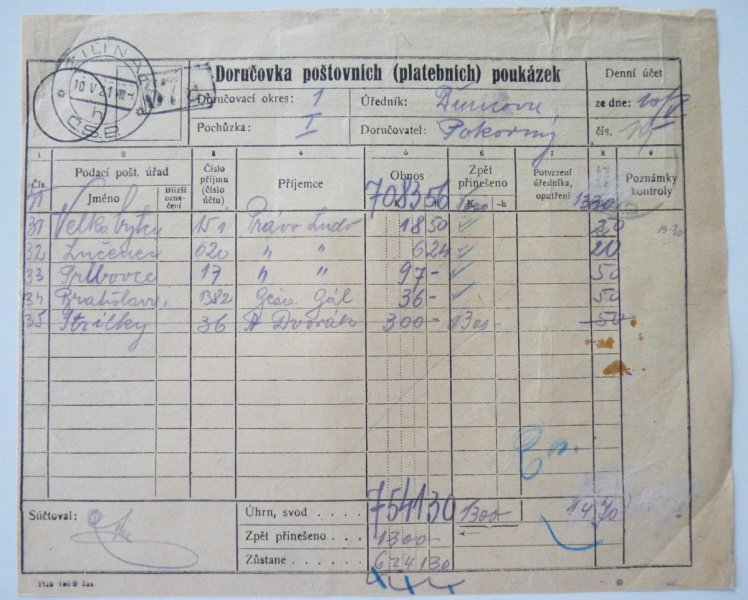 ŽILINA
10 V 21 VIII
Č.S.R.
Doručovka poštovních (platebních) poukázek
Denní účet
Doručovací okres: 1
Úředník:
ze dne:
Pochůzka: I
Doručovatel: Pokorný
čís.
1 2 3 4 5 6 7 8 9
Čís.
Podací pošt. úřad
Jméno
Bližší ozna- čení
Číslo příjmu (číslo účtu)
Příjemce
Obnos
K h
Zpět přinešeno
K h
Potvrzení úředníka, opatření
Poznámky kontroly
708356 1300 1330
31 Velká Bytča 151 Právo Lidu 18 50 20
32 Lučenec 620 " " 624 20
33 17 " " 97- 50
34 Bratislava 1382 Géza Gál 36- 50
35 Střílky 36 A Dvořák 300- 1300 50
Súčtoval:
Úhrn, svod . . . . 754130 1300 14 70
Zpět přinešeno . . . 1300
Zůstane . . . . . 624130
Tisk 190 B čes.